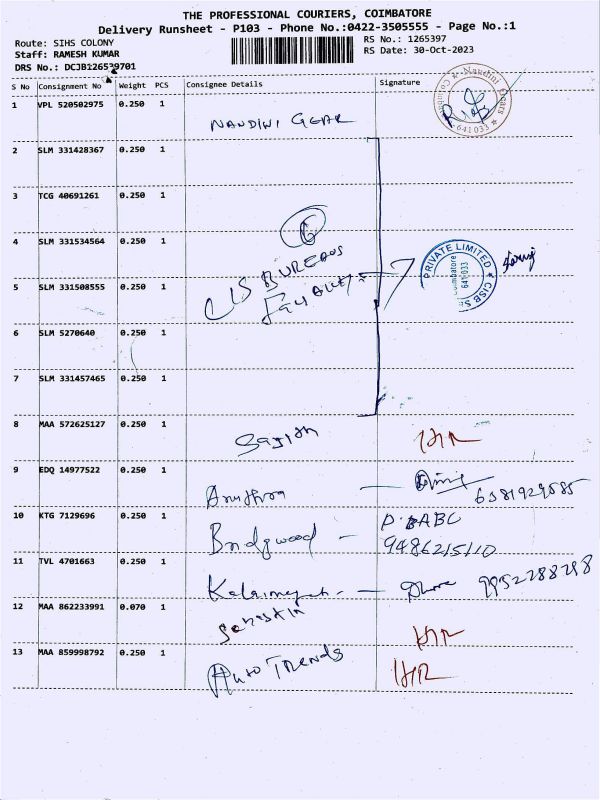 THE PROFESSIONAL COURIERS, COIMBATORE
Delivery Runsheet - P103 - Phone No.:0422-3505555 - Page No.:1
Route: SIHS COLONY
RS No.: 1265397
Staff: RAMESH KUMAR
RS Date: 30-Oct-2023
DRS No.: DCJB126539701
S No Consignment No Weight PCS Consignee Details Signature
1 VPL 520502975 0.250 1
NANDINI GEAR
Coimbatore Nandini Gears 641033
2 SLM 331428367 0.250 1
3 TCG 40691261 0.250 1
4 SLM 331534564 0.250 1
6
PRIVATE LIMITED
Coimbatore
641 033
5 SLM 331508555 0.250 1
BUREAUS
6 SLM 5270640 0.250 1
7 SLM 331457465 0.250 1
8 MAA 572625127 0.250 1
HR
9 EDQ 14977522 0.250 1
6381929585
10 KTG 7129696 0.250 1
Bridgwood - P. BABC
9486215110
11 TVL 4701663 0.250 1
9952288298
12 MAA 862233991 0.070 1
HR
13 MAA 859998792 0.250 1
Auto Trends HR